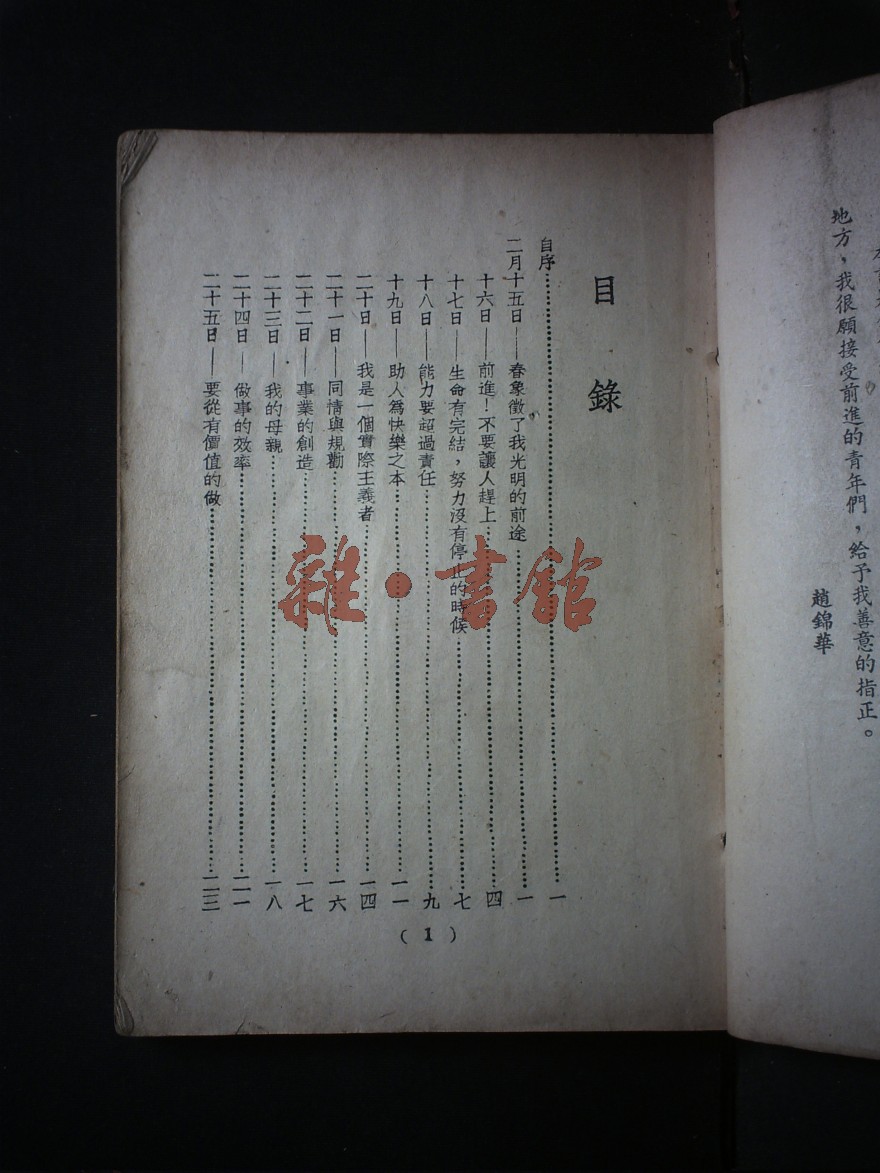 地方，我很願接受前進的青年們，給予我善意的指正。
趙錦華
目錄
自序……一
二月十五日——春象徵了我光明的前途……一
十六日——前進！不要讓人趕上……四
十七日——生命有完結，努力沒有停止的時候……七
十八日——能力要超過責任……九
十九日——助人爲快樂之本……一一
二十日——我是一個實際主義者……一四
二十一日——同情與規勸……一六
二十二日——事業的創造……一七
二十三日——我的母親……一八
二十四日——做事的效率……二一
二十五日——要從有價值的做……二三
(1)
雜·書館